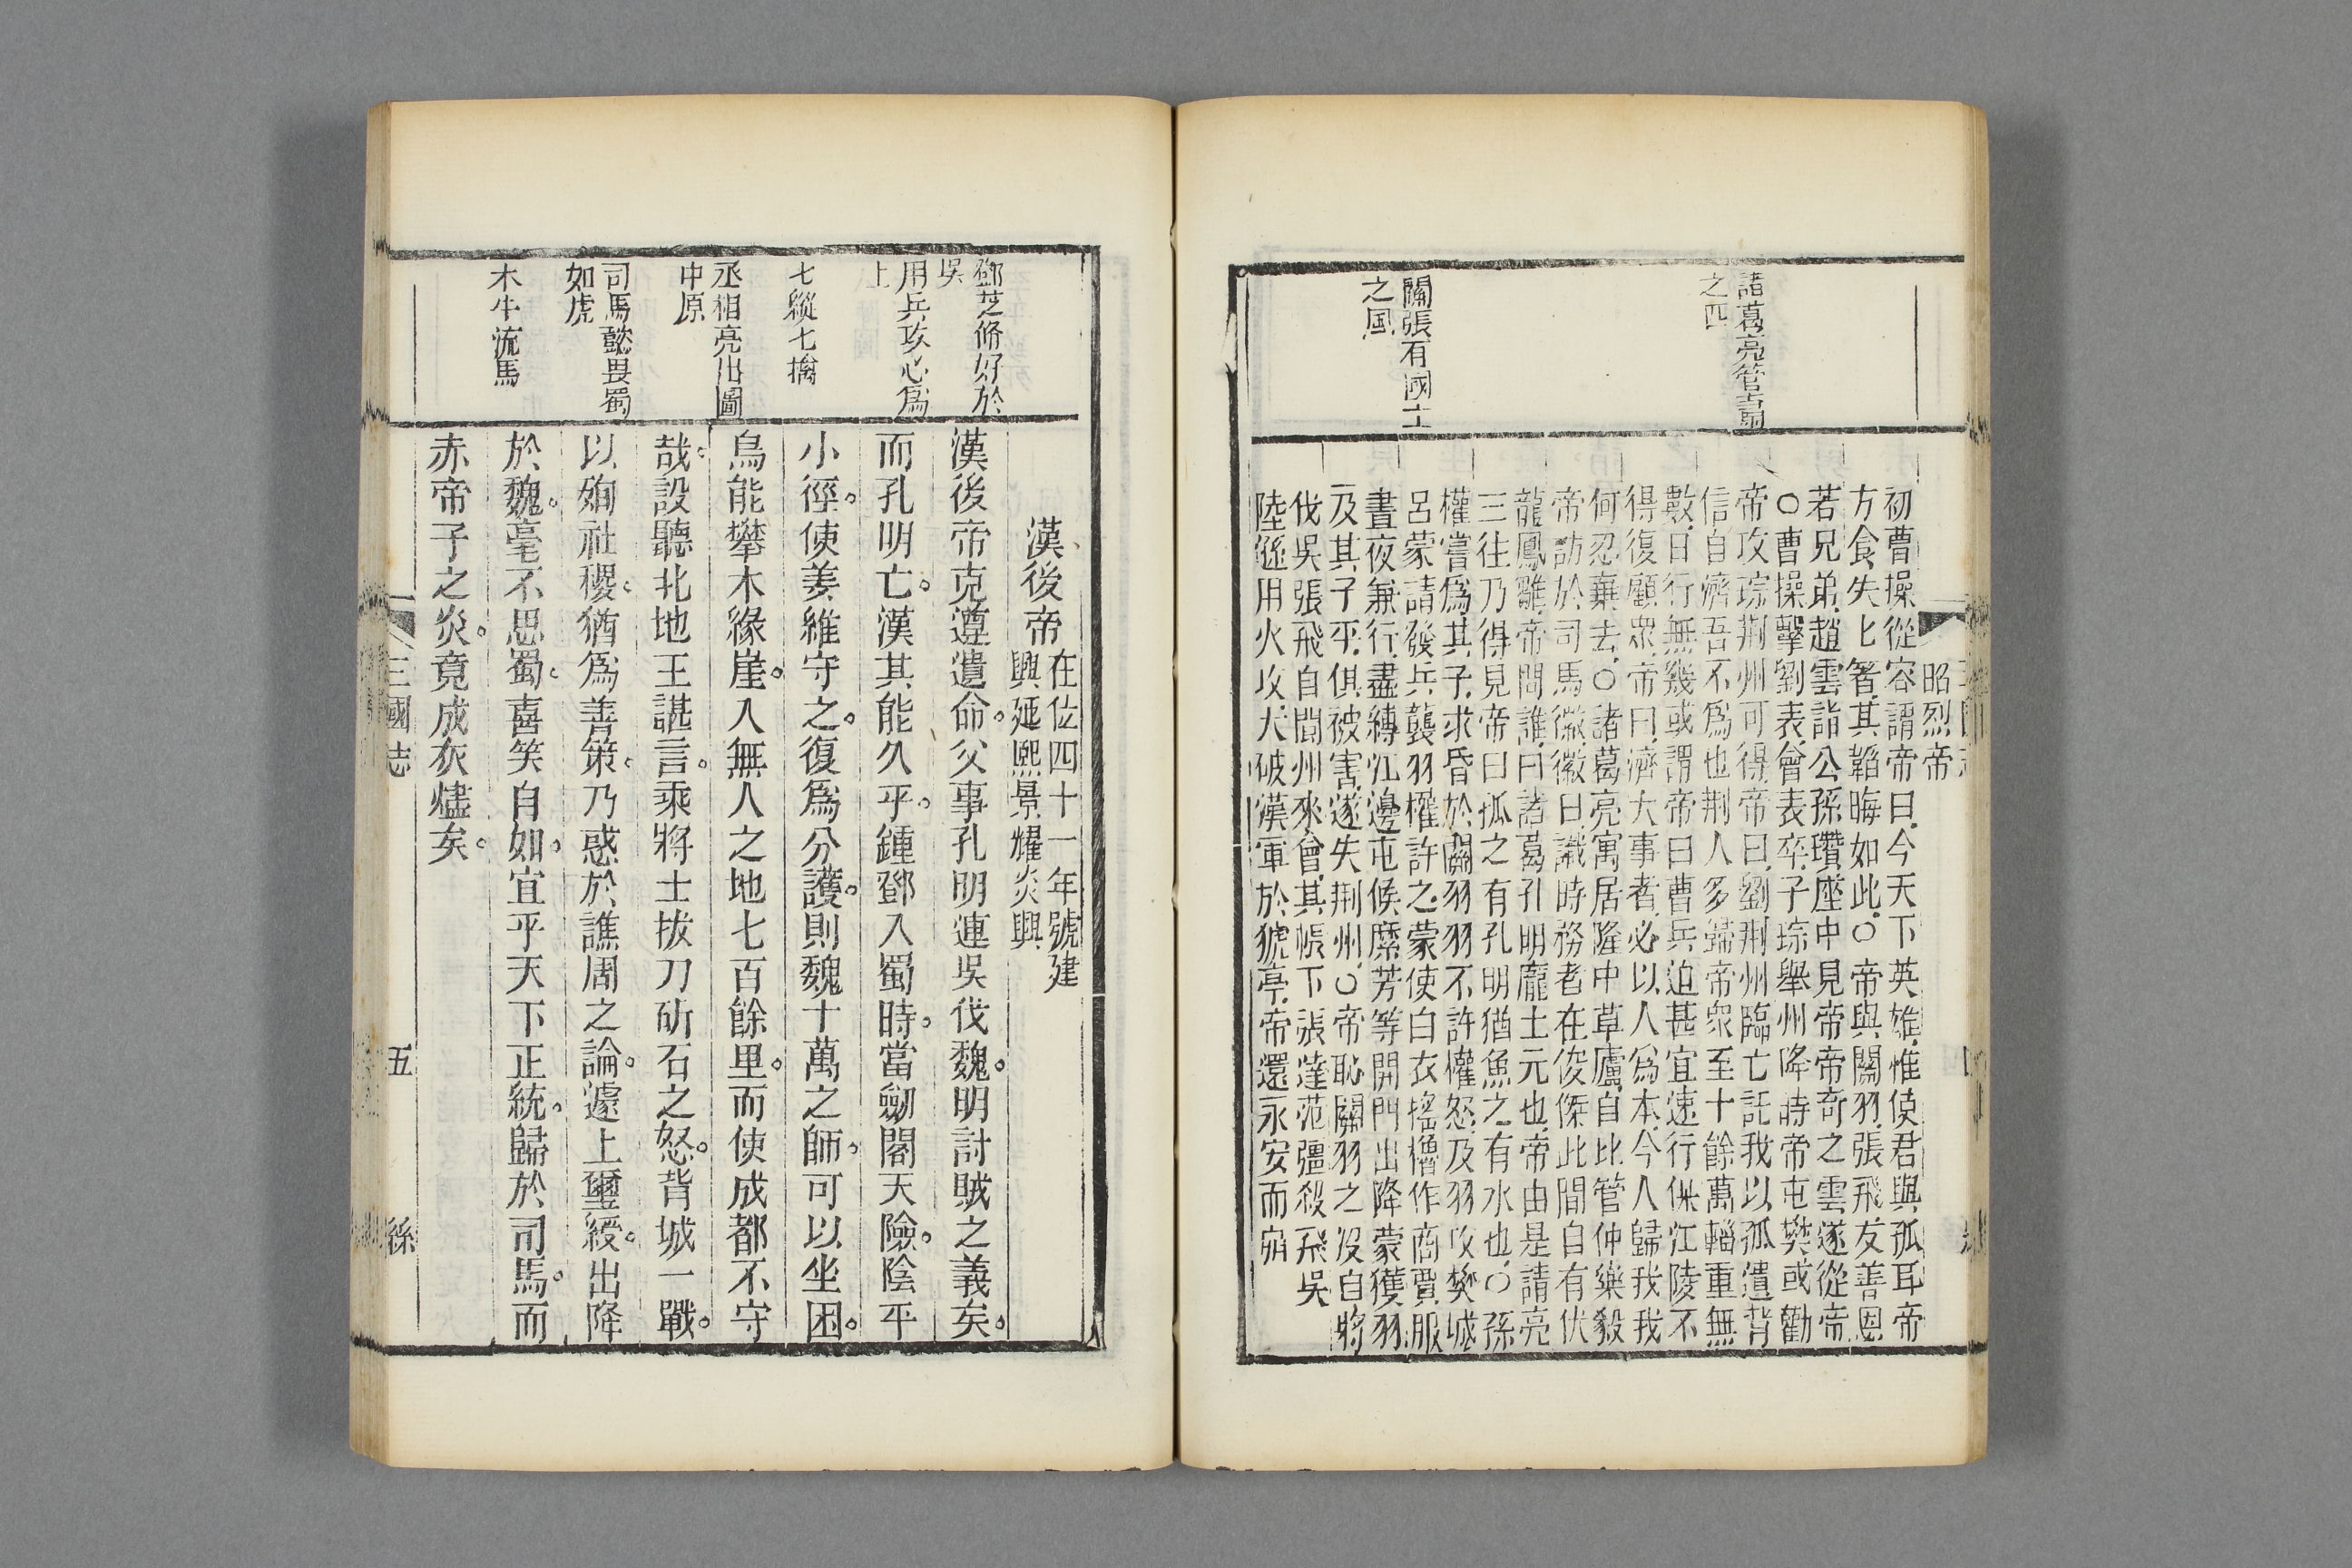 昭烈帝
初曹操從容謂帝曰今天下英雄惟使君與孤耳帝
方食失匕箸其韜晦如此○帝與關羽張飛友善恩
若兄弟趙雲詣公孫瓚座中見帝帝奇之雲遂從帝
○曹操擊劉表會表卒子琮舉州降時帝屯樊或勸
帝攻琮荆州可得帝曰劉荆州臨亡託我以孤遺背
信自濟吾不爲也荆人多歸帝衆至十餘萬輜重無
數日行無幾或謂帝曰曹兵迫甚宜速行保江陵不
得復顧衆帝曰濟大事者必以人爲本今人歸我我
何忍棄去○諸葛亮寓居隆中草廬自比管仲樂毅
帝訪於司馬徽徽曰識時務者在俊傑此間自有伏
龍鳳雛帝問誰曰諸葛孔明龐士元也帝由是請亮
三往乃得見帝曰孤之有孔明猶魚之有水也○孫
權嘗爲其子求昏於關羽羽不許權怒及羽攻樊城
呂蒙請發兵襲羽權許之蒙使白衣搖櫓作商賈服
晝夜兼行盡縛江邊屯候糜芳等開門出降蒙獲羽
及其子平俱被害遂失荆州○帝恥關羽之沒自將
伐吳張飛自閬州來會其帳下張達范彊殺飛吳
陸遜用火攻大破漢軍於猇亭帝還永安而崩
諸葛亮管吉翩
之匹
關張有國士
之風
漢後帝
在位四十一年號建
興延熙景耀炎興
漢後帝克遵遺命。父事孔明連吳伐魏。明討賊之義矣。
而孔明亡。漢其能久乎。鍾鄧入蜀時。當劒閣天險。陰平
小徑。使姜維守之。復爲分護。則魏十萬之師。可以坐困。
烏能攀木緣崖。入無人之地七百餘里。而使成都不守
哉。設聽北地王諶言。乘將士拔刀斫石之怒。背城一戰。
以殉社稷。猶爲善策。乃惑於譙周之論。遽上璽綬。出降
於魏。毫不思蜀。喜笑自如。宜乎天下正統。歸於司馬。而
赤帝子之炎。竟成灰燼矣。
鄧芝脩好於
吳
用兵攻心爲
上
七縱七擒
丞相亮出圖
中原
司馬懿畏蜀
如虎
木牛流馬
三國志
五
孫